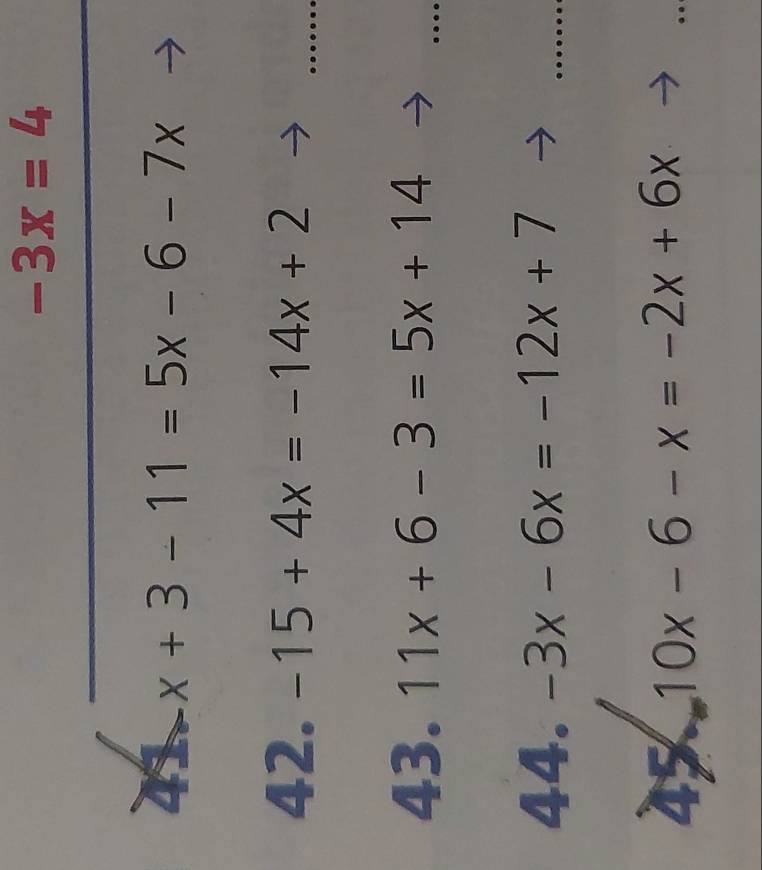 -3x = 4
41. x + 3 - 11 = 5x - 6 - 7x →
42. -15 + 4x = -14x + 2 → .......
43. 11x + 6 - 3 = 5x + 14 → ....
44. -3x - 6x = -12x + 7 → .......
45. 10x - 6 - x = -2x + 6x → ...